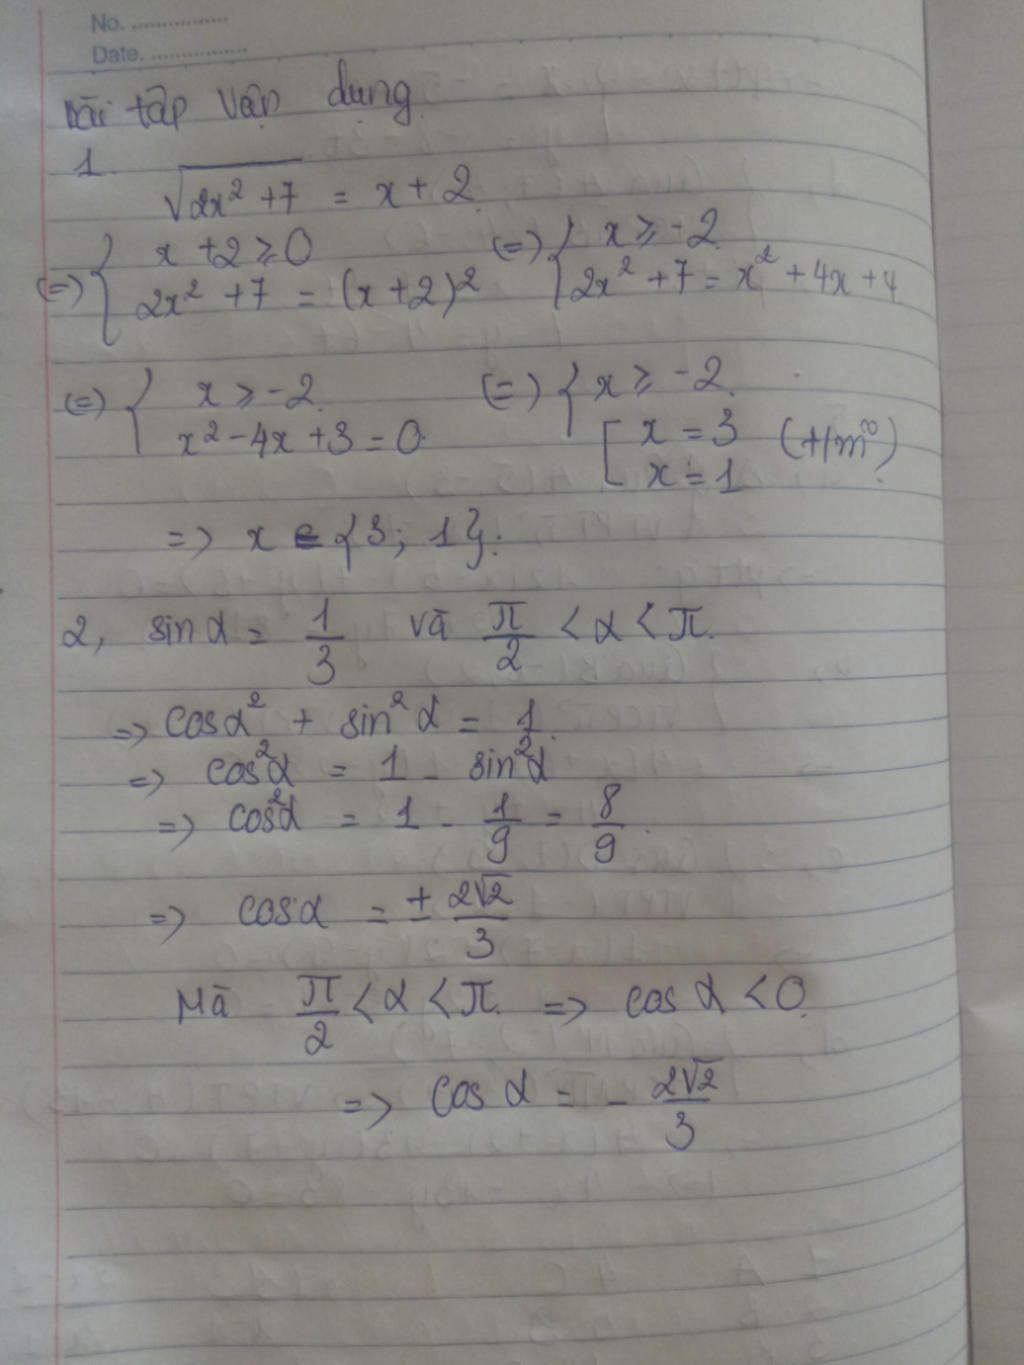 No. ..................
Date. ..................
Bài tập vận dụng
1.
√2x² + 7 = x + 2
(=) { x + 2 ≥ 0 (=) { x ≥ -2
2x² + 7 = (x + 2)² 2x² + 7 = x² + 4x + 4
(=) { x ≥ -2. (=) { x ≥ -2.
x² - 4x + 3 = 0. [ x = 3 (t/m⁰)
x = 1
=> x ∈ {3; 1}.
2, sin α = 1/3 và π/2 < α < π.
=> cosα² + sin² α = 1.
=> cos²α = 1 - sin²α
=> cos²α = 1 - 1/9 = 8/9.
=> cosα = ± 2√2/3
Mà π/2 < α < π. => cos α < 0.
=> cos α = - 2√2/3